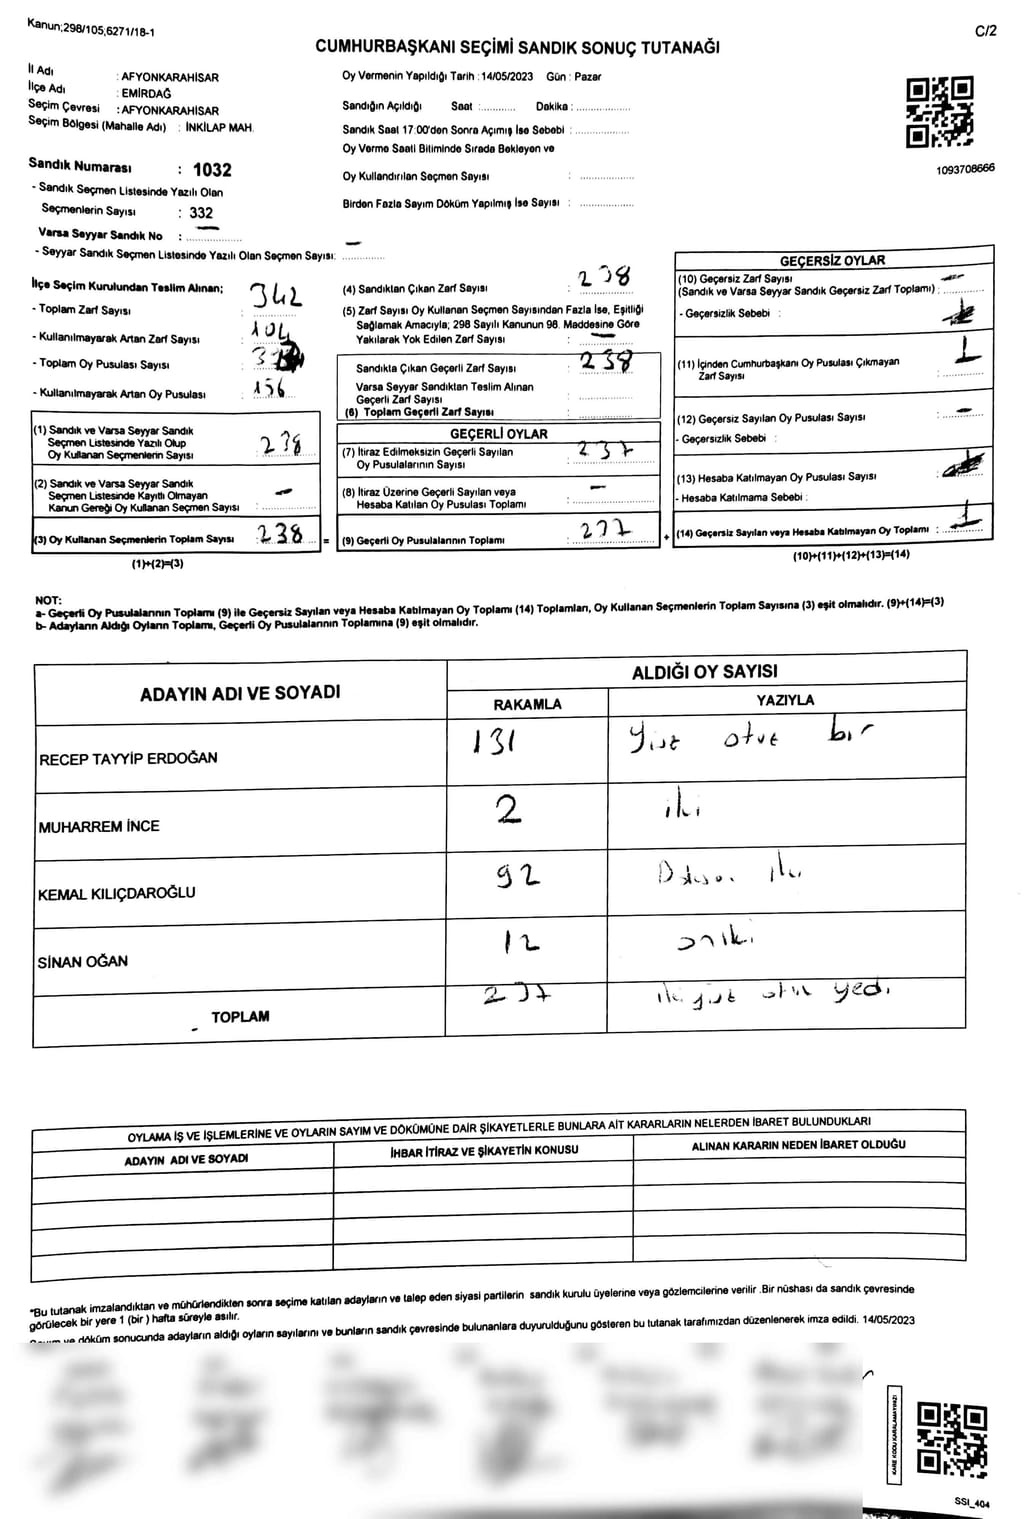 Kanun;298/105;6271/18-1
C/2
CUMHURBAŞKANI SEÇİMİ SANDIK SONUÇ TUTANAĞI
İl Adı : AFYONKARAHİSAR
İlçe Adı : EMİRDAĞ
Seçim Çevresi : AFYONKARAHİSAR
Seçim Bölgesi (Mahalle Adı) : İNKİLAP MAH.
Sandık Numarası : 1032
- Sandık Seçmen Listesinde Yazılı Olan
Seçmenlerin Sayısı : 332
Varsa Seyyar Sandık No : —
- Seyyar Sandık Seçmen Listesinde Yazılı Olan Seçmen Sayısı: —
Oy Vermenin Yapıldığı Tarih : 14/05/2023 Gün : Pazar
Sandığın Açıldığı Saat :............ Dakika :..................
Sandık Saat 17:00'den Sonra Açımış İse Sebebi :..................
Oy Verme Saati Bitiminde Sırada Bekleyen ve
Oy Kullandırılan Seçmen Sayısı : ..................
Birden Fazla Sayım Döküm Yapılmış İse Sayısı : ..................
1093708666
İlçe Seçim Kurulundan Teslim Alınan;
- Toplam Zarf Sayısı : 342
- Kullanılmayarak Artan Zarf Sayısı : 104
- Toplam Oy Pusulası Sayısı :
- Kullanılmayarak Artan Oy Pusulası : 156
(1) Sandık ve Varsa Seyyar Sandık
Seçmen Listesinde Yazılı Olup
Oy Kullanan Seçmenlerin Sayısı : 238
(2) Sandık ve Varsa Seyyar Sandık
Seçmen Listesinde Kayıtlı Olmayan
Kanun Gereği Oy Kullanan Seçmen Sayısı : —
(3) Oy Kullanan Seçmenlerin Toplam Sayısı : 238 =
(1)+(2)=(3)
(4) Sandıktan Çıkan Zarf Sayısı : 238
(5) Zarf Sayısı Oy Kullanan Seçmen Sayısından Fazla İse, Eşitliği
Sağlamak Amacıyla; 298 Sayılı Kanunun 98. Maddesine Göre
Yakılarak Yok Edilen Zarf Sayısı : —
Sandıkta Çıkan Geçerli Zarf Sayısı : 238
Varsa Seyyar Sandıktan Teslim Alınan
Geçerli Zarf Sayısı :
(6) Toplam Geçerli Zarf Sayısı :
GEÇERLİ OYLAR
(7) İtiraz Edilmeksizin Geçerli Sayılan
Oy Pusulalarının Sayısı : 237
(8) İtiraz Üzerine Geçerli Sayılan veya
Hesaba Katılan Oy Pusulası Toplamı : —
(9) Geçerli Oy Pusulalarının Toplamı : 237 +
GEÇERSİZ OYLAR
(10) Geçersiz Zarf Sayısı
(Sandık ve Varsa Seyyar Sandık Geçersiz Zarf Toplamı) : —
- Geçersizlik Sebebi :
(11) İçinden Cumhurbaşkanı Oy Pusulası Çıkmayan
Zarf Sayısı : 1
(12) Geçersiz Sayılan Oy Pusulası Sayısı : —
- Geçersizlik Sebebi :
(13) Hesaba Katılmayan Oy Pusulası Sayısı :
- Hesaba Katılmama Sebebi :
(14) Geçersiz Sayılan veya Hesaba Katılmayan Oy Toplamı : 1
(10)+(11)+(12)+(13)=(14)
NOT:
a- Geçerli Oy Pusulalarının Toplamı (9) ile Geçersiz Sayılan veya Hesaba Katılmayan Oy Toplamı (14) Toplamları, Oy Kullanan Seçmenlerin Toplam Sayısına (3) eşit olmalıdır. (9)+(14)=(3)
b- Adayların Aldığı Oyların Toplamı, Geçerli Oy Pusulalarının Toplamına (9) eşit olmalıdır.
ADAYIN ADI VE SOYADI ALDIĞI OY SAYISI
RAKAMLA YAZIYLA
RECEP TAYYİP ERDOĞAN 131 Yüz otuz bir
MUHARREM İNCE 2 iki
KEMAL KILIÇDAROĞLU 92 Doksan iki
SİNAN OĞAN 12 oniki
TOPLAM 237 iki yüz otuz yedi
OYLAMA İŞ VE İŞLEMLERİNE VE OYLARIN SAYIM VE DÖKÜMÜNE DAİR ŞİKAYETLERLE BUNLARA AİT KARARLARIN NELERDEN İBARET BULUNDUKLARI
ADAYIN ADI VE SOYADI İHBAR İTİRAZ VE ŞİKAYETİN KONUSU ALINAN KARARIN NEDEN İBARET OLDUĞU
*Bu tutanak imzalandıktan ve mühürlendikten sonra seçime katılan adayların ve talep eden siyasi partilerin sandık kurulu üyelerine veya gözlemcilerine verilir .Bir nüshası da sandık çevresinde
görülecek bir yere 1 (bir ) hafta süreyle asılır.
ve döküm sonucunda adayların aldığı oyların sayılarını ve bunların sandık çevresinde bulunanlara duyurulduğunu gösteren bu tutanak tarafımızdan düzenlenerek imza edildi. 14/05/2023
KARE KODU KARALAMAYINIZ!
SSI_404